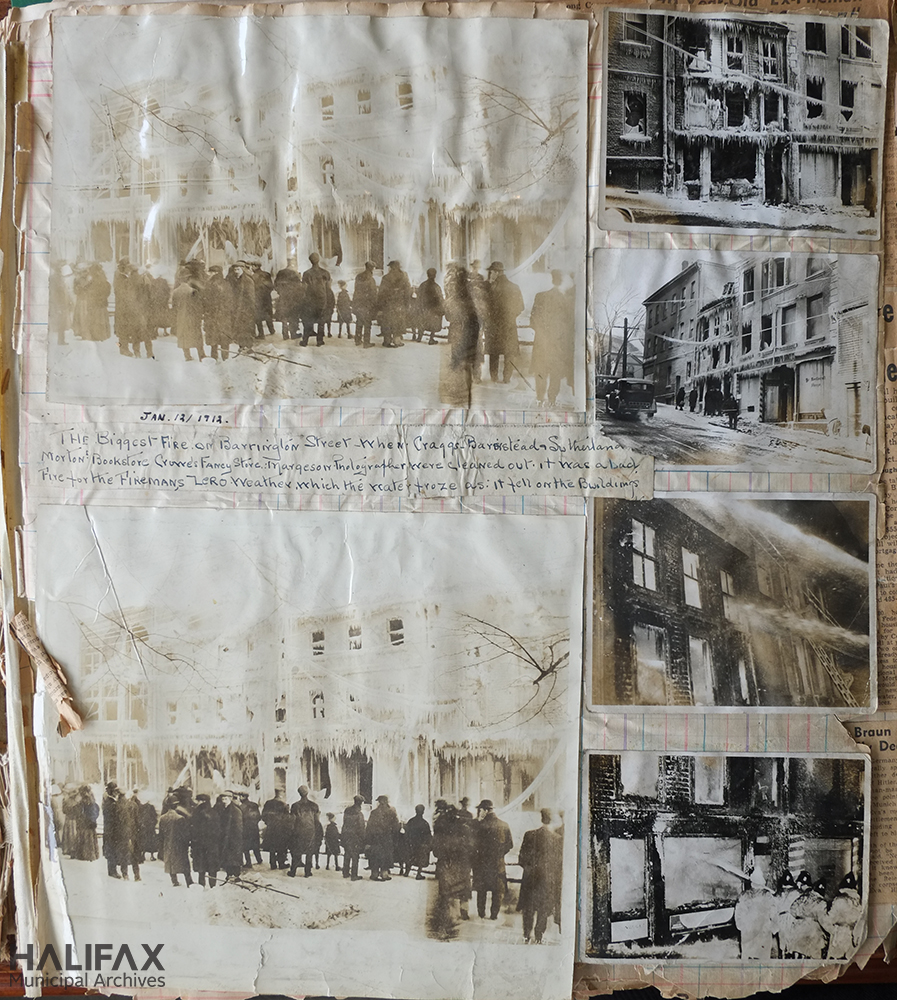 JAN. 12/1912.
THE Biggest Fire on Barrington Street when Craggs Barnstead & Sutherland
Morton's Bookstore Crowe's Fancy Store. Margeson Photographer were cleaned out. it was a bad
Fire for the Firemans ZERO Weather which the water froze as it fell on the Buildings
Braun
De
HALIFAX
Municipal Archives